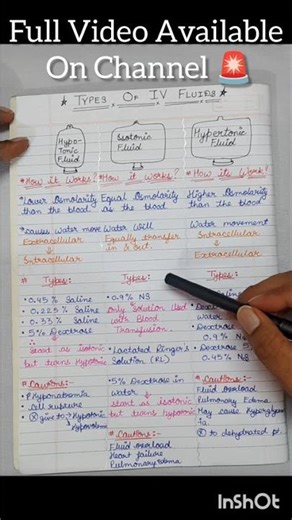 Full Video Available
On Channel 🚨
★ TYPES OF IV FLUIDS ★
Hypo-
Tonic
Fluid
Isotonic
Fluid
Hypertonic
Fluid
* How it Works?
* Lower Osmolarity
than the blood
* Causes Water move
Extracellular
↓
Intracellular
# Types:-
• 0.45% Saline
• 0.225% Saline
• 0.33% Saline
• 5% Dextrose
∴
start as isotonic
but turns hypotonic
# Cautions:-
• Hyponatremia
• Cell rupture
• ⓧ give to :-
* How it Works?
Equal Osmolarity
as the blood
Water Will
Equally transfer
in & out.
Types:-
• 0.9% NS
only Solution Used
with Blood
Transfusion.
• Lactated Ringer's
Solution (RL)
• 5% Dextrose in
Water &
start as isotonic
but turns hypotonic
# Cautions:-
Fluid Overload
Heart failure
Pulmonary Edema
* How its Work?
Higher Osmolarity
than the blood
Water movement
Intracellular
↓
Extracellular
Types:-
Water
• Dextrose
0.9% NS
• Dextrose
0.45% NS
# Cautions:-
Fluid Overload
Pulmonary Edema
May cause
ⓧ to dehydrated
InShOt